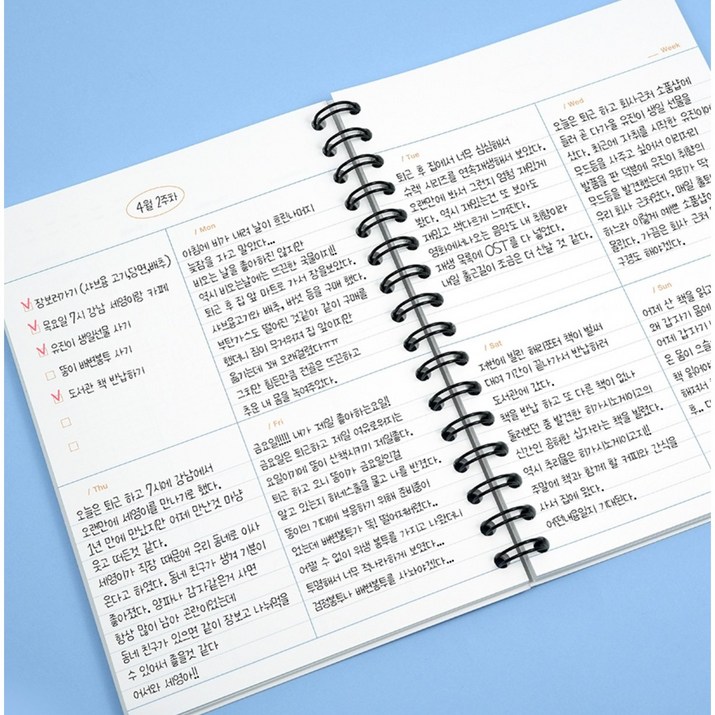 4월 2주차
장보러가기 (샤브용 고기,당면,배추)
목요일 7시 강남 세영이랑 카페
유진이 생일선물 사기
뚱이 배변봉투 사기
도서관 책 반납하기
/ Mon
아침에 비가 내려 날이 흐린나머지
늦잠을 자고 말았다...
비오는 날을 좋아하진 않지만
역시 비오는날에는 뜨끈한 국물이지!!
퇴근 후 집 앞 마트로 가서 장을보았다.
샤브용고기와 배추, 버섯 등을 구매 했다.
부탄가스도 떨어진 것같아 같이 구매를
했더니 짐이 무거워져 집 앞이지만
옮기는데 꽤 오래걸렸다ㅠㅠ
그치만 힘든만큼 전골은 뜨끈하고
추운 내 몸을 녹여주었다.
/ Tue
퇴근 후 집에서 너무 심심해서
슈렉 시리즈를 연속재생해서 보았다.
오랜만에 봐서 그런지 엄청 재밌게
봤다. 역시 재밌는건 또 보아도
재밌고 색다르게 느껴진다.
영화에나오는 음악도 내 취향이라
재생 목록에 OST를 다 넣었다.
내일 출근길이 조금은 더 신날 것 같다.
__ Week
/ Wed
오늘은 퇴근 하고 회사근처 소품샵에
들러 곧 다가올 유진이 생일 선물을
샀다. 최근에 자취를 시작한 유진이에
무드등을 사주고 싶어서 이리저리
발품을 판 덕분에 유진이 취향의
무드등을 발견했는데 위치가 딱
우리 회사 근처였다. 매일 출퇴
하는데 이렇게 예쁜 소품샵이
몰랐다. 가끔은 회사 근처
구경도 해야겠다.
/ Thu
오늘은 퇴근 하고 7시에 강남에서
오랜만에 세영이를 만나기로 했다.
1년 만에 만났지만 어제 만난것 마냥
웃고 떠든것 같다.
세영이가 직장 때문에 우리 동네로 이사
온다고 하였다. 동네 친구가 생겨 기분이
좋아졌다. 양파나 감자같은거 사면
항상 많이 남아 곤란이었는데
동네 친구가 있으면 같이 장보고 나눠먹을
수 있어서 좋을것 같다
어서와 세영아!!
/ Fri
금요일!!!!! 내가 제일 좋아하는요일!
금요일은 퇴근하고 제일 여유로워지는
요일이기에 뚱이 산책시키기 제일좋다.
퇴근 하고 오니 뚱이가 금요일인걸
알고 있는지 하네스줄을 물고 나를 반겼다.
뚱이의 기대에 부응하기 위해 준비중이
었는데 배변봉투가 똑! 떨어져버렸다...
어쩔 수 없이 위생 봉투를 가지고 나왔더니
투명해서 너무 적나라하게 보였다...
검정봉투나 배변봉투를 사놔야겠다...
/ Sat
저번에 빌린 해리포터 책이 벌써
대여 기간이 끝나가서 반납하러
도서관에 갔다.
책을 반납 하고 또 다른 책이 없나
둘러보던 중 발견한 히가시노게이고의
신간인 공허한 십자라는 책을 빌렸다.
역시 추리물은 히가시노게이고지!!
주말에 책과 함께 할 커피와 간식을
사서 집에 왔다.
어떤내용일지 기대된다.
/ Sun
어제 산 책을 읽고
왜 갑자기 몸에
어제 갑자기
은 몸이 으슬
책 읽어야
해져서 더
후.. 다